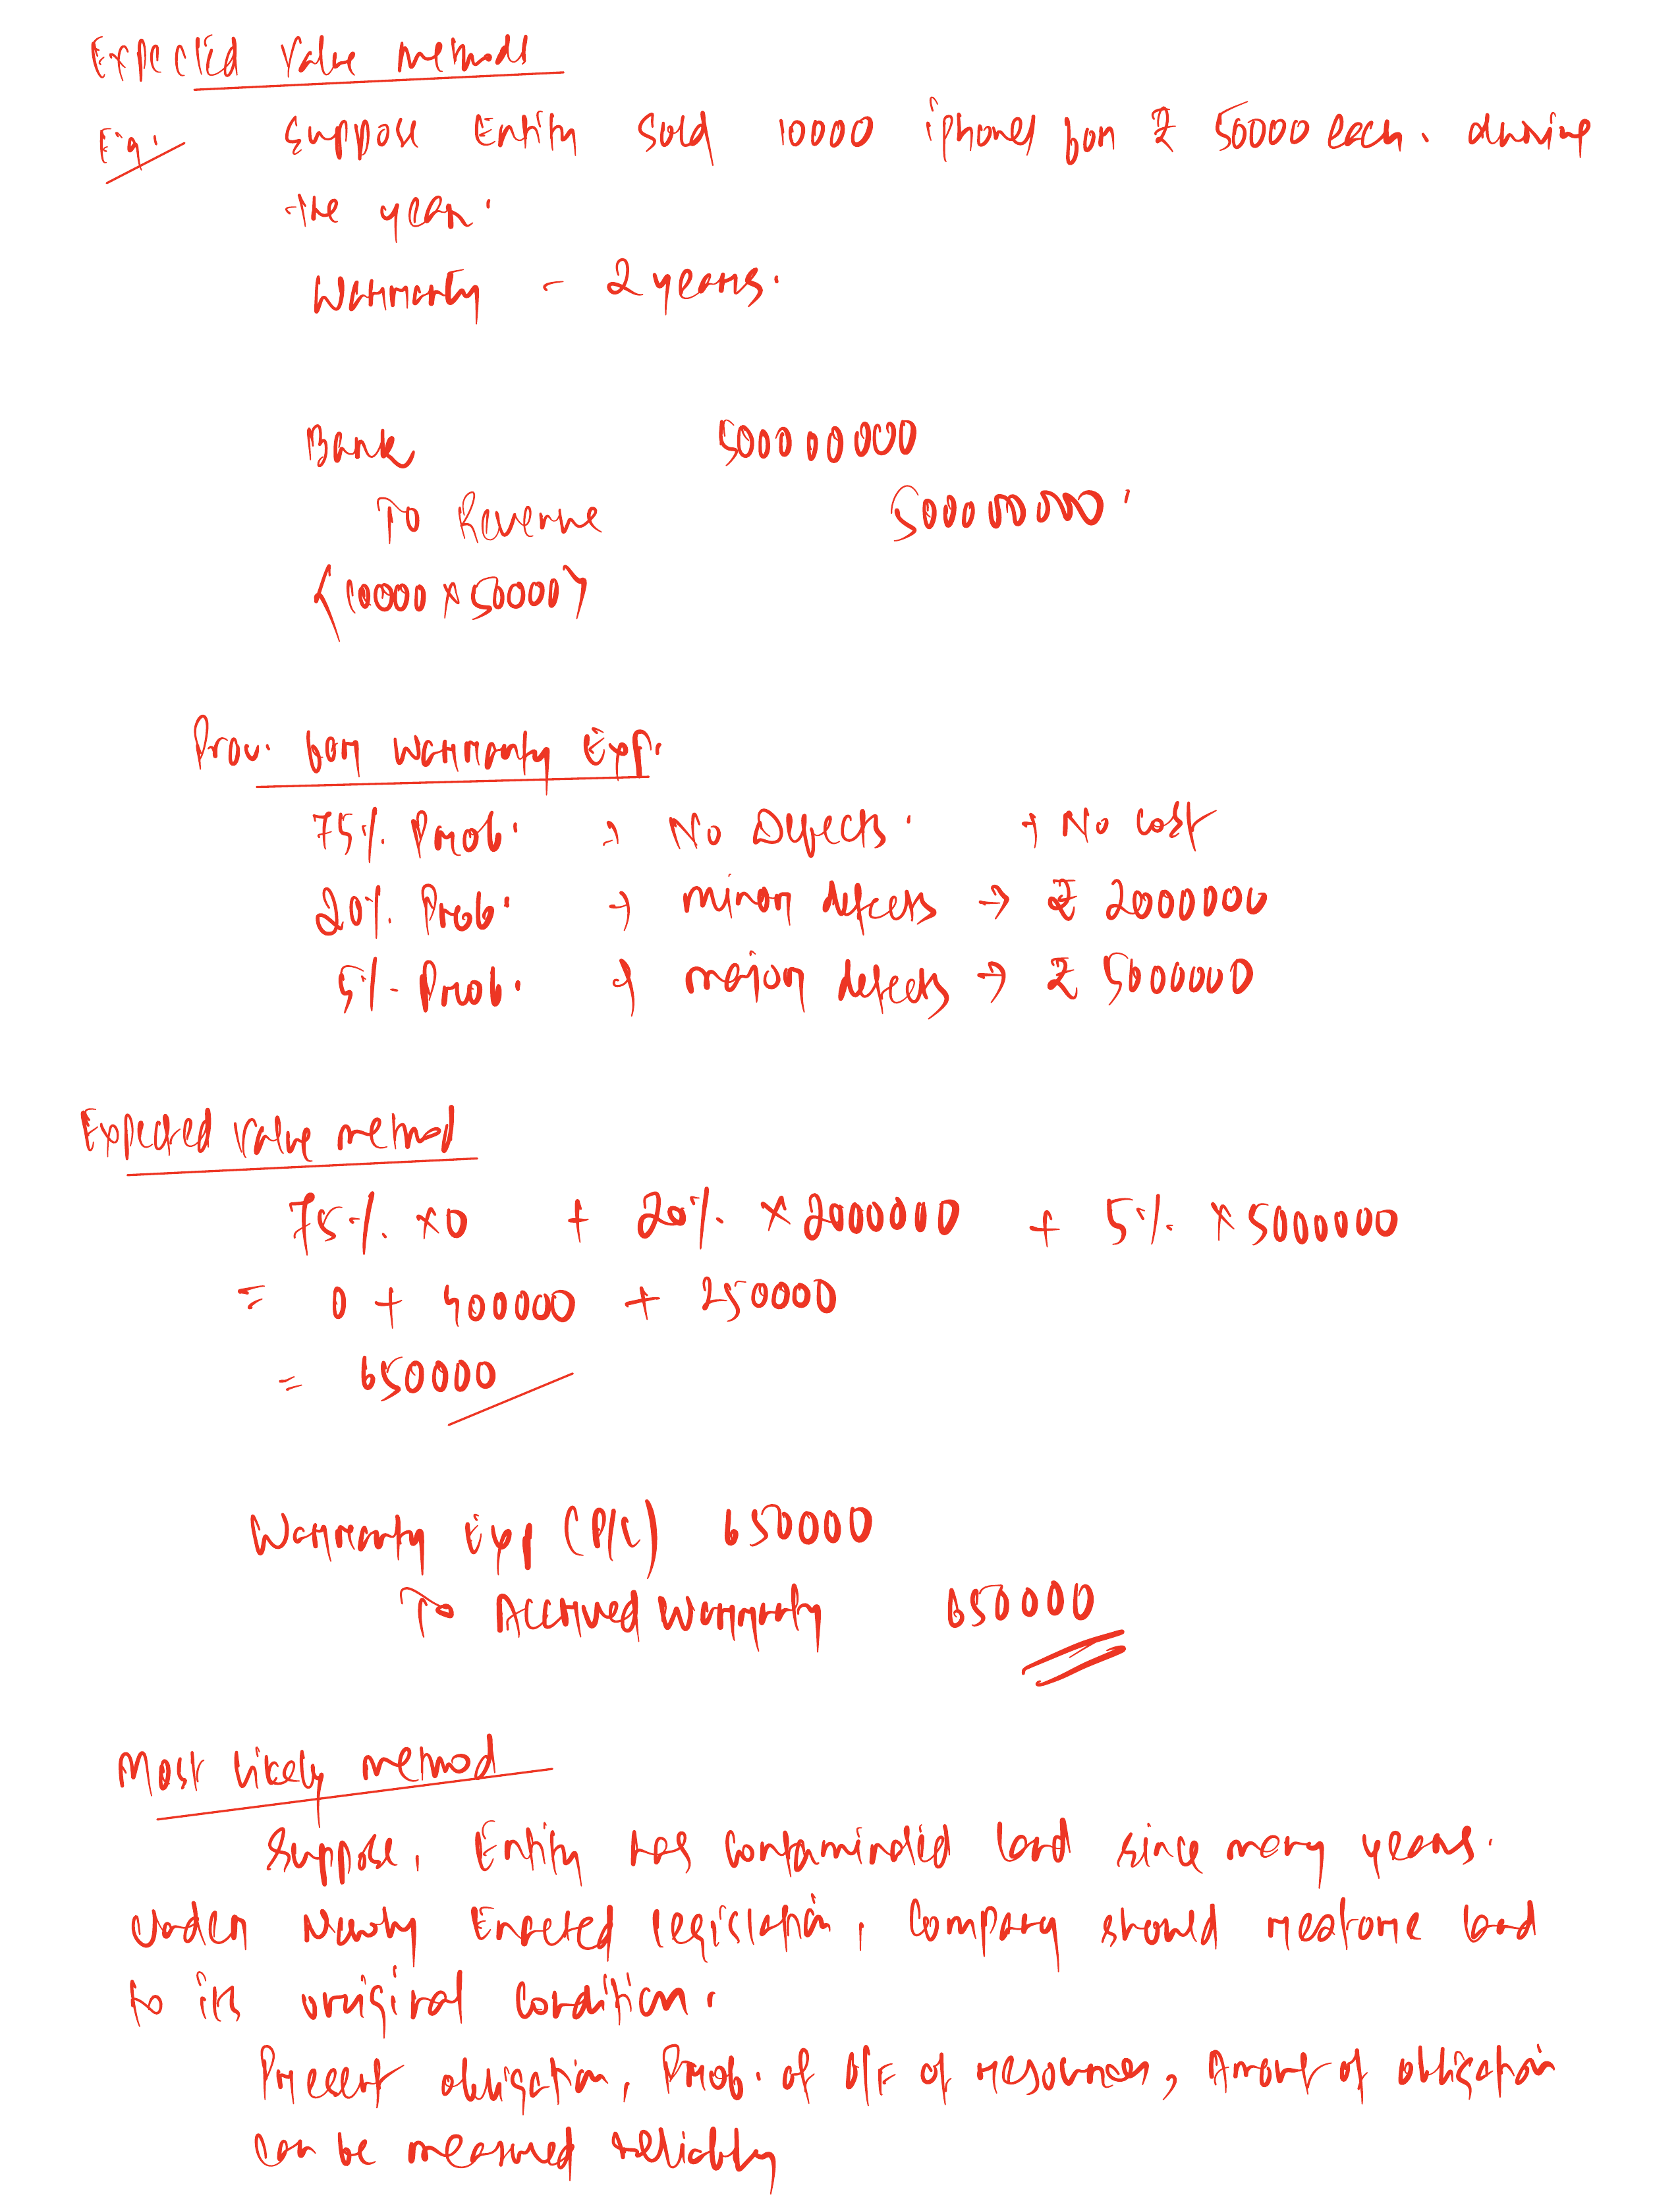 Expected Value methods
Eg. Suppose Entity sold 10000 iphones for ₹ 50000 each. during
the year.
Warranty - 2 years.
Bank 500000000
To Revenue 500000000.
(10000 x 50000)
Prov. for warranty Exp.
75% Prob. → No Defects. → No cost
20% Prob. → minor defects → ₹ 2000000
5% Prob. → major defects → ₹ 5000000
Expected Value method
75% x 0 + 20% x 2000000 + 5% x 5000000
= 0 + 400000 + 250000
= 650000
Warranty Exp (P/L) 650000
To Accrued Warranty 650000
Most likely method
Suppose, Entity has contaminated land since many years.
Under Newly Enacted legislation, Company should restore land
to its original condition.
Present obligation, Prob. of O/F of resources, Amount of obligation
can be measured reliably